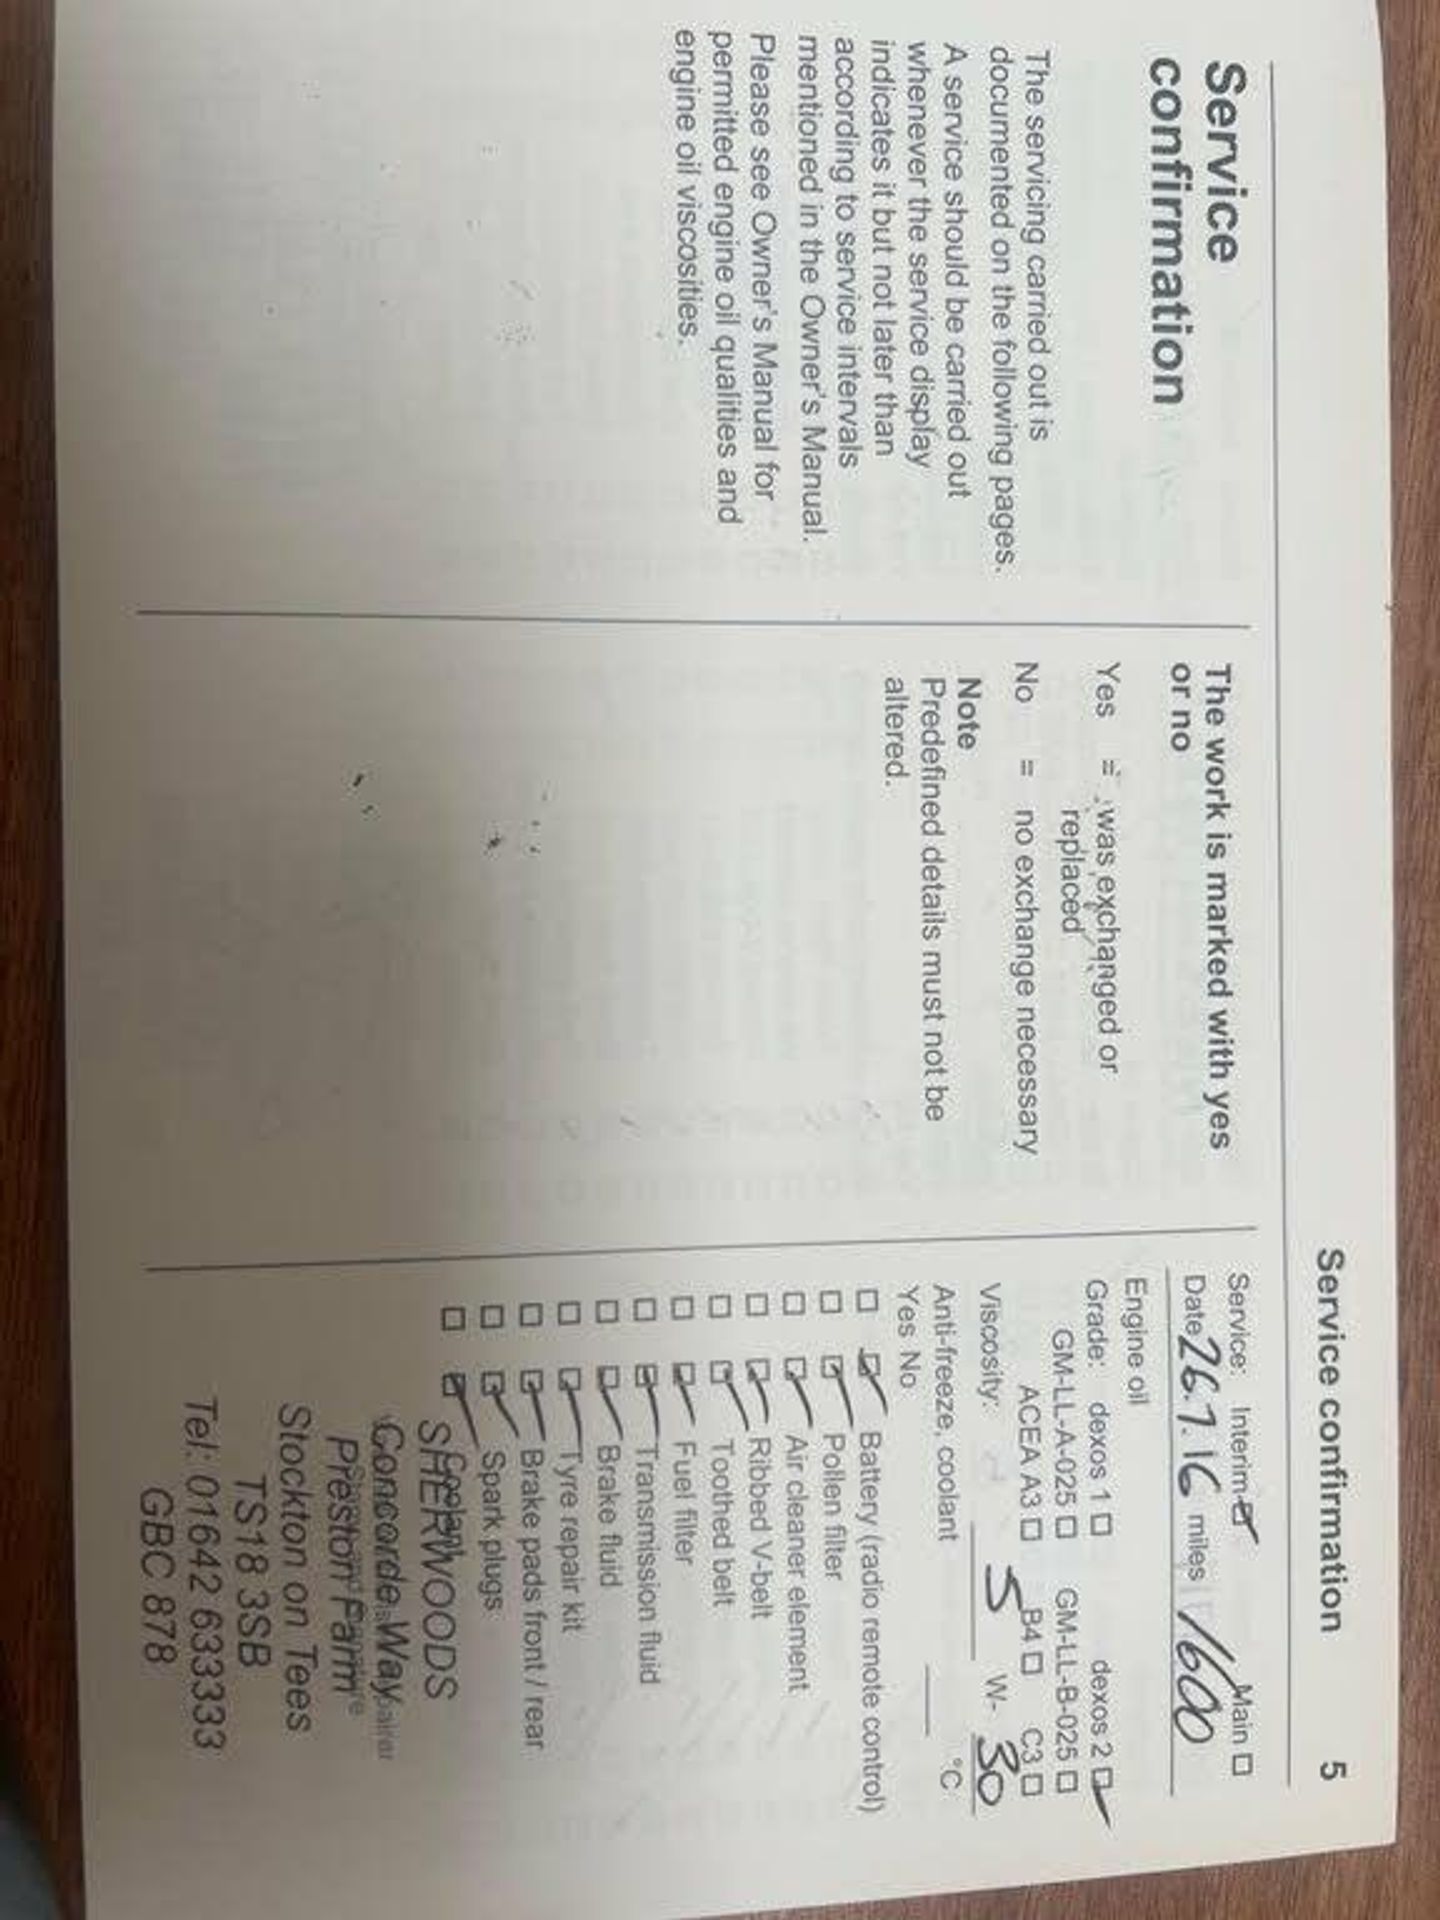 Service confirmation 5
Service
confirmation
The servicing carried out is
documented on the following pages.
A service should be carried out
whenever the service display
indicates it but not later than
according to service intervals
mentioned in the Owner's Manual.
Please see Owner's Manual for
permitted engine oil qualities and
engine oil viscosities.
The work is marked with yes
or no
Yes = was exchanged or
replaced
No = no exchange necessary
Note
Predefined details must not be
altered.
Service: Interim ☑ Main ☐
Date 26.7.16 miles 1600
Engine oil
Grade: dexos 1 ☐ dexos 2 ☑
GM-LL-A-025 ☐ GM-LL-B-025 ☐
ACEA A3 ☐ B4 ☐ C3 ☐
Viscosity: 5 W- 30
Anti-freeze, coolant °C
Yes No
☐ ☑ Battery (radio remote control)
☐ ☑ Pollen filter
☐ ☑ Air cleaner element
☐ ☑ Ribbed V-belt
☐ ☑ Toothed belt
☐ ☑ Fuel filter
☐ ☑ Transmission fluid
☐ ☑ Brake fluid
☐ ☑ Tyre repair kit
☐ ☑ Brake pads front / rear
☐ ☑ Spark plugs
☐ ☑ Coolant
SHERWOODS
Concorde Way
Preston Farm
Stockton on Tees
TS18 3SB
Tel: 01642 633333
GBC 878